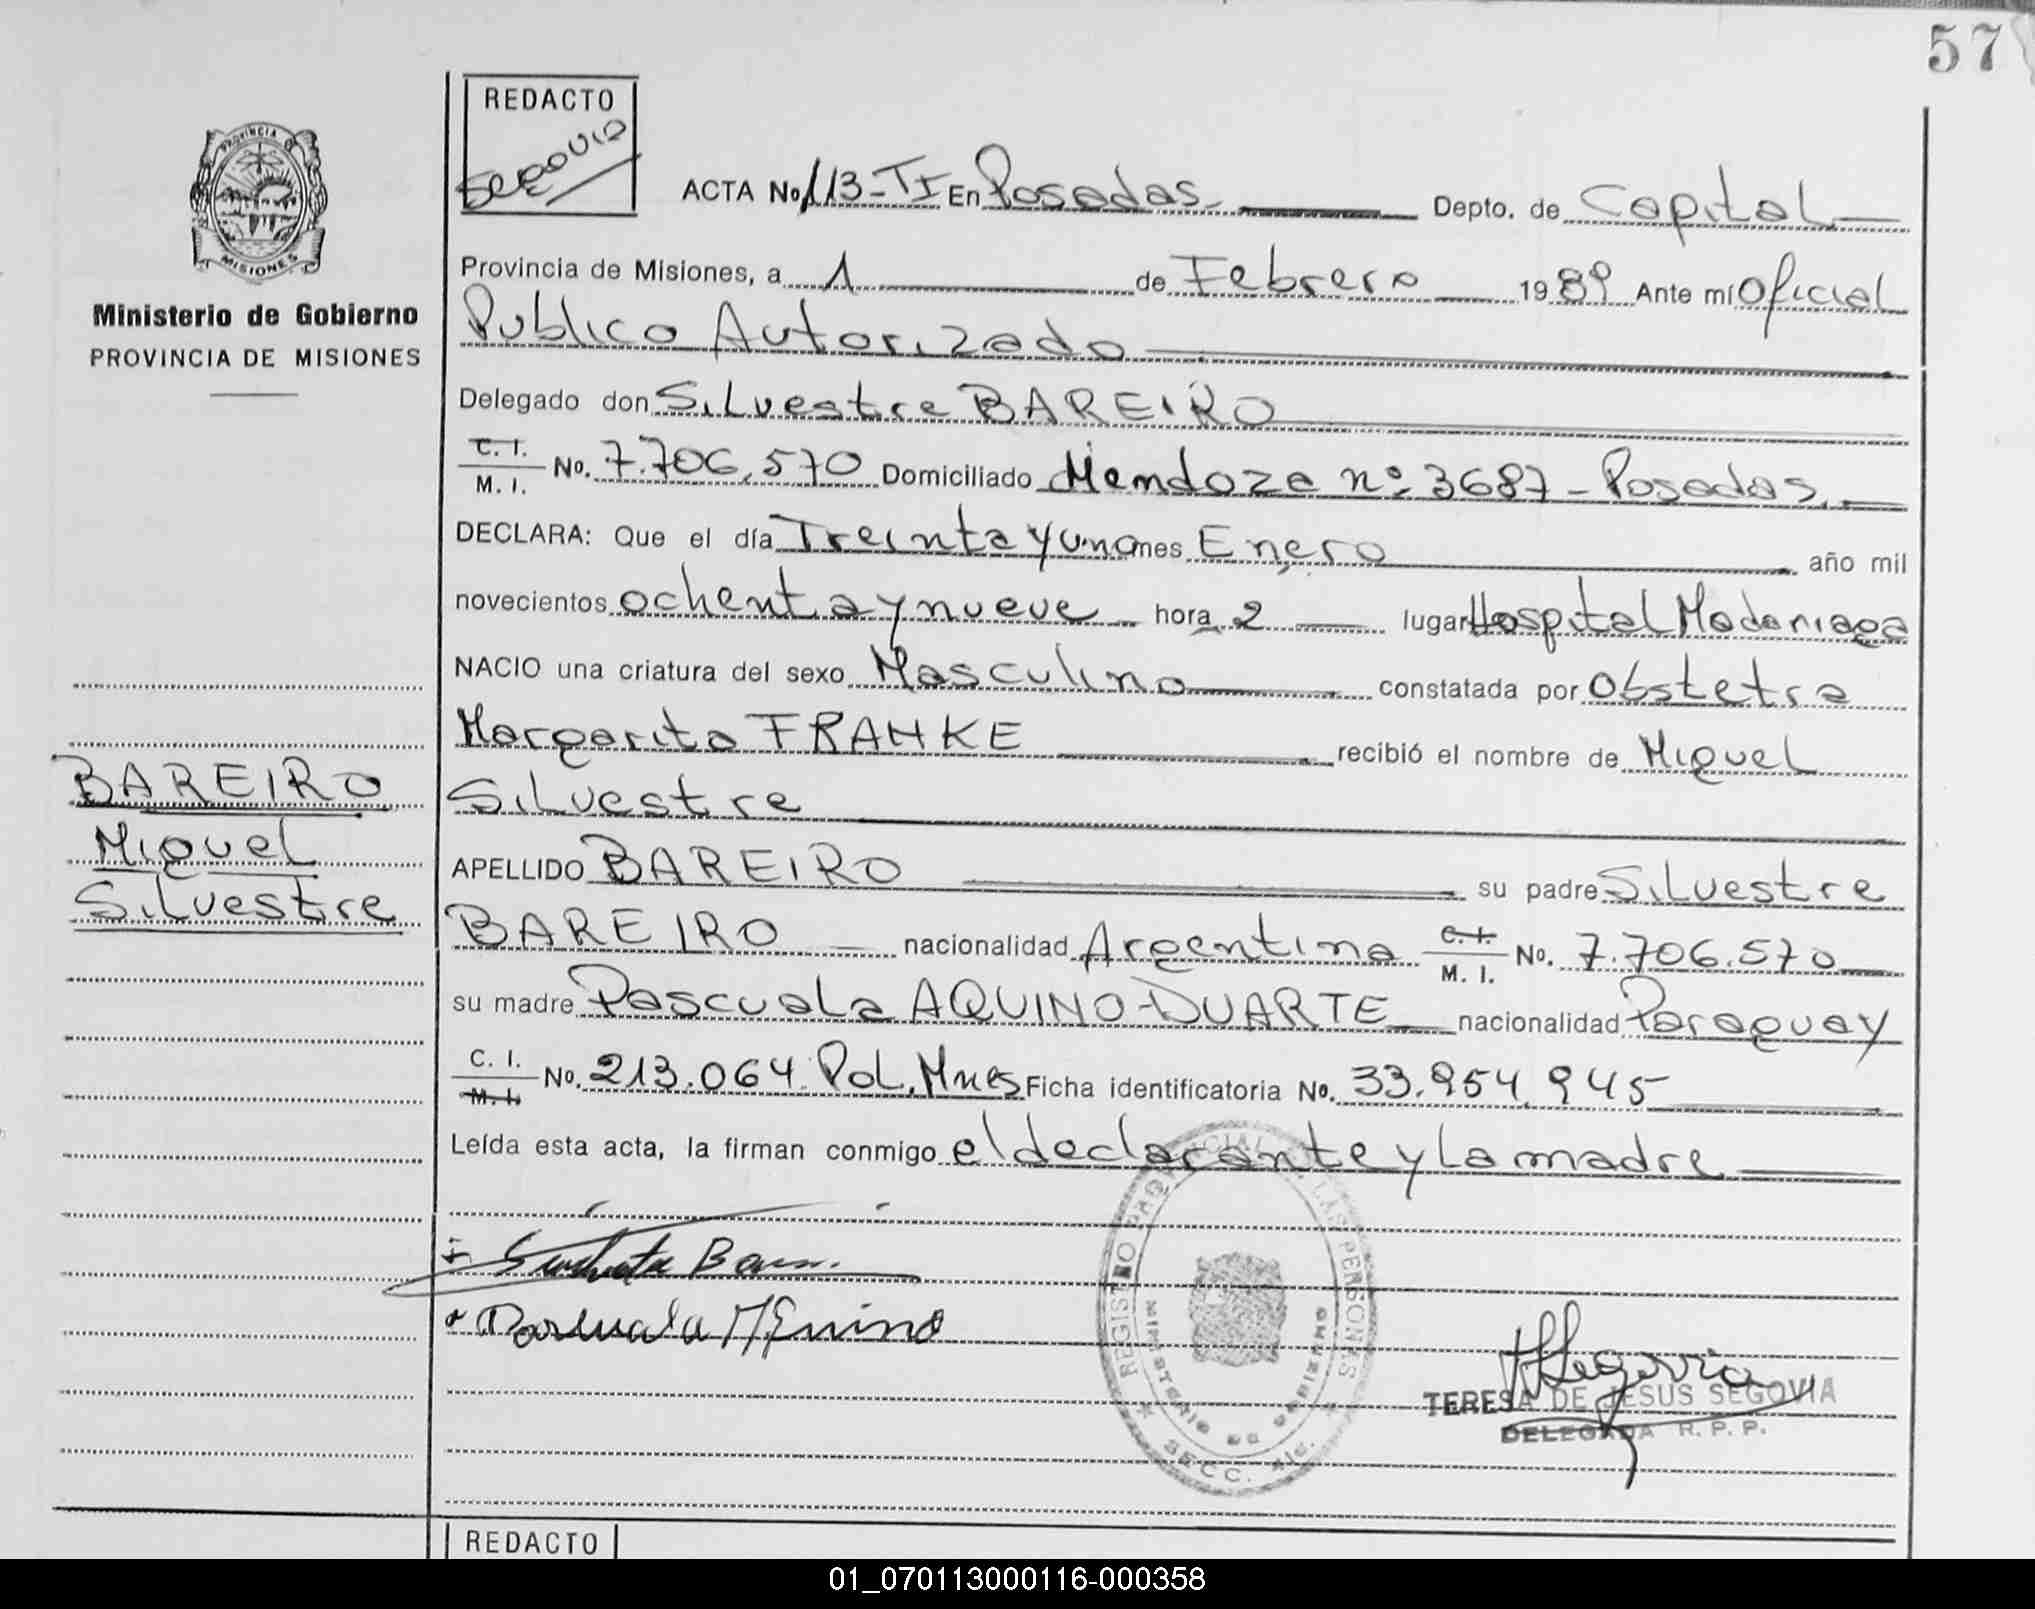 57
REDACTO
SEGOVIA
PROVINCIA DE
MISIONES
Ministerio de Gobierno
PROVINCIA DE MISIONES
ACTA No 113-TI En Posadas. Depto. de Capital
Provincia de Misiones, a 1 de Febrero 1989 Ante mí Oficial
Publico Autorizado
Delegado don Silvestre BAREIRO
C. I. / M. I. No. 7.706.570 Domiciliado Mendoza nº 3687 - Posadas.
DECLARA: Que el día Treinta y uno mes Enero año mil
novecientos ochenta y nueve hora 2 lugar Hospital Madariaga
NACIO una criatura del sexo Masculino constatada por Obstetra
Margarita FRANKE recibió el nombre de Miguel
Silvestre
APELLIDO BAREIRO su padre Silvestre
BAREIRO nacionalidad Argentina C. I. / M. I. No. 7.706.570
su madre Pascuala AQUINO-DUARTE nacionalidad Paraguay
C. I. / M. I. No. 213.064 Pol. Mnes Ficha identificatoria No. 33.954.945
Leída esta acta, la firman conmigo el declarante y la madre
BAREIRO
Miguel
Silvestre
REGISTRO PROVINCIAL DE LAS PERSONAS
MINISTERIO DE GOBIERNO
SECC.
Segovia
TERESA DE JESUS SEGOVIA
DELEGADA R. P. P.
REDACTO
01_070113000116-000358